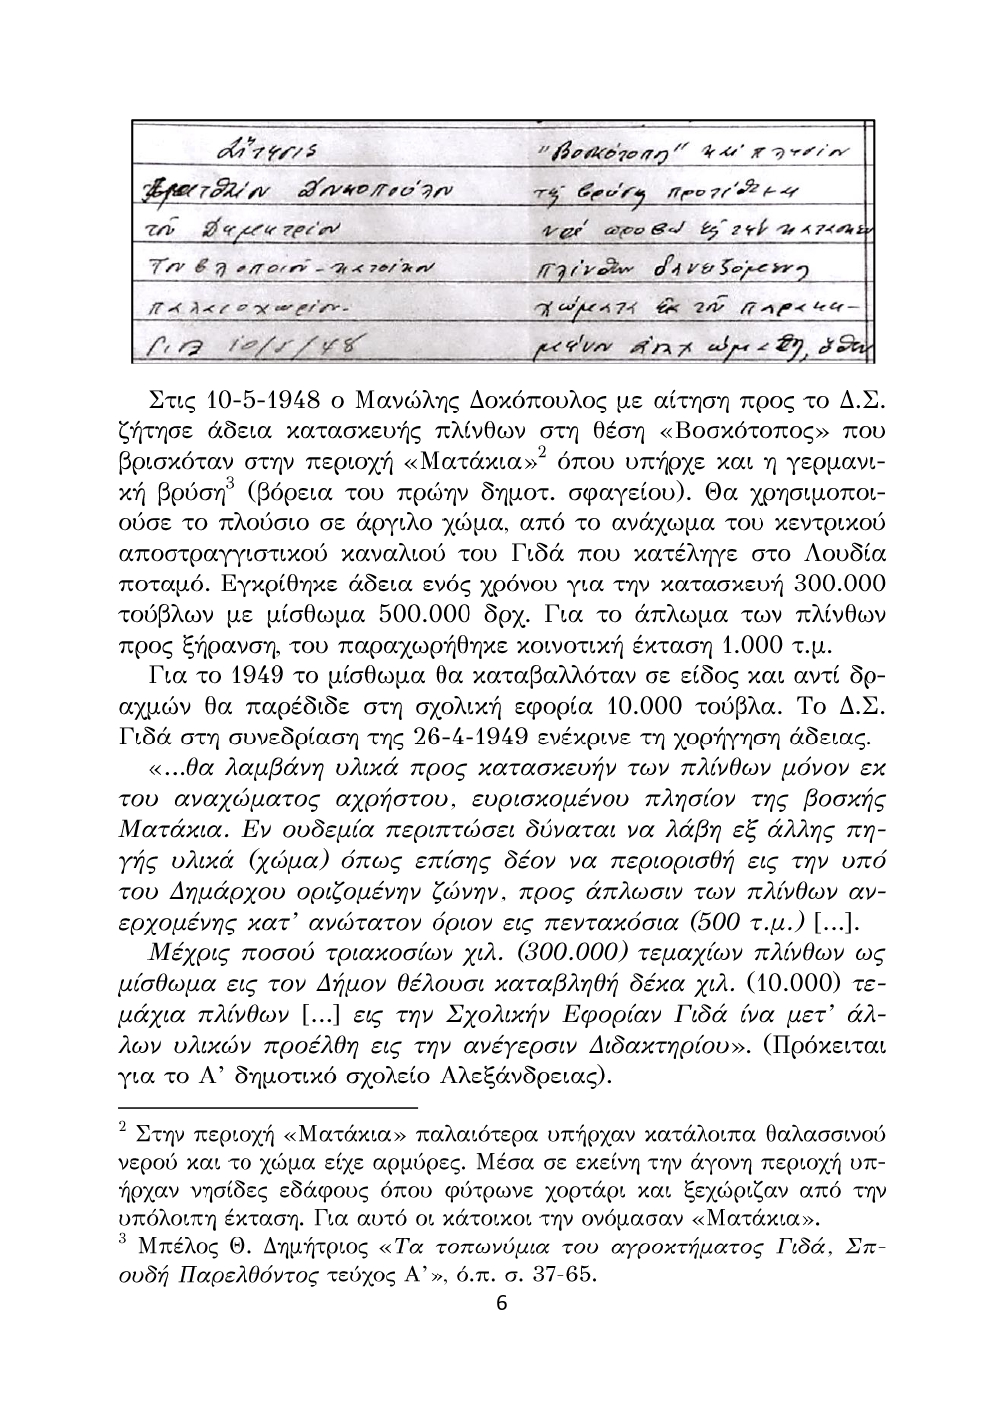 Αἴτησις
Δημητρίου
"Βοσκότοπη" καὶ πλησίον
τῆς βρύσης προτίθεμαι
νὰ προβῶ εἰς τὴν κατασκευ
πλίνθων
χώματα ἐκ τοῦ παρακει-
10/5/48
Στις 10-5-1948 ο Μανώλης Δοκόπουλος με αίτηση προς το Δ.Σ.
ζήτησε άδεια κατασκευής πλίνθων στη θέση «Βοσκότοπος» που
βρισκόταν στην περιοχή «Ματάκια»2 όπου υπήρχε και η γερμανι-
κή βρύση3 (βόρεια του πρώην δημοτ. σφαγείου). Θα χρησιμοποι-
ούσε το πλούσιο σε άργιλο χώμα, από το ανάχωμα του κεντρικού
αποστραγγιστικού καναλιού του Γιδά που κατέληγε στο Λουδία
ποταμό. Εγκρίθηκε άδεια ενός χρόνου για την κατασκευή 300.000
τούβλων με μίσθωμα 500.000 δρχ. Για το άπλωμα των πλίνθων
προς ξήρανση, του παραχωρήθηκε κοινοτική έκταση 1.000 τ.μ.
Για το 1949 το μίσθωμα θα καταβαλλόταν σε είδος και αντί δρ-
αχμών θα παρέδιδε στη σχολική εφορία 10.000 τούβλα. Το Δ.Σ.
Γιδά στη συνεδρίαση της 26-4-1949 ενέκρινε τη χορήγηση άδειας.
«...θα λαμβάνη υλικά προς κατασκευήν των πλίνθων μόνον εκ
του αναχώματος αχρήστου, ευρισκομένου πλησίον της βοσκής
Ματάκια. Εν ουδεμία περιπτώσει δύναται να λάβη εξ άλλης πη-
γής υλικά (χώμα) όπως επίσης δέον να περιορισθή εις την υπό
του Δημάρχου οριζομένην ζώνην, προς άπλωσιν των πλίνθων αν-
ερχομένης κατ’ ανώτατον όριον εις πεντακόσια (500 τ.μ.) [...].
Μέχρις ποσού τριακοσίων χιλ. (300.000) τεμαχίων πλίνθων ως
μίσθωμα εις τον Δήμον θέλουσι καταβληθή δέκα χιλ. (10.000) τε-
μάχια πλίνθων [...] εις την Σχολικήν Εφορίαν Γιδά ίνα μετ’ άλ-
λων υλικών προέλθη εις την ανέγερσιν Διδακτηρίου». (Πρόκειται
για το Α’ δημοτικό σχολείο Αλεξάνδρειας).
2 Στην περιοχή «Ματάκια» παλαιότερα υπήρχαν κατάλοιπα θαλασσινού
νερού και το χώμα είχε αρμύρες. Μέσα σε εκείνη την άγονη περιοχή υπ-
ήρχαν νησίδες εδάφους όπου φύτρωνε χορτάρι και ξεχώριζαν από την
υπόλοιπη έκταση. Για αυτό οι κάτοικοι την ονόμασαν «Ματάκια».
3 Μπέλος Θ. Δημήτριος «Τα τοπωνύμια του αγροκτήματος Γιδά, Σπ-
ουδή Παρελθόντος τεύχος Α’», ό.π. σ. 37-65.
6